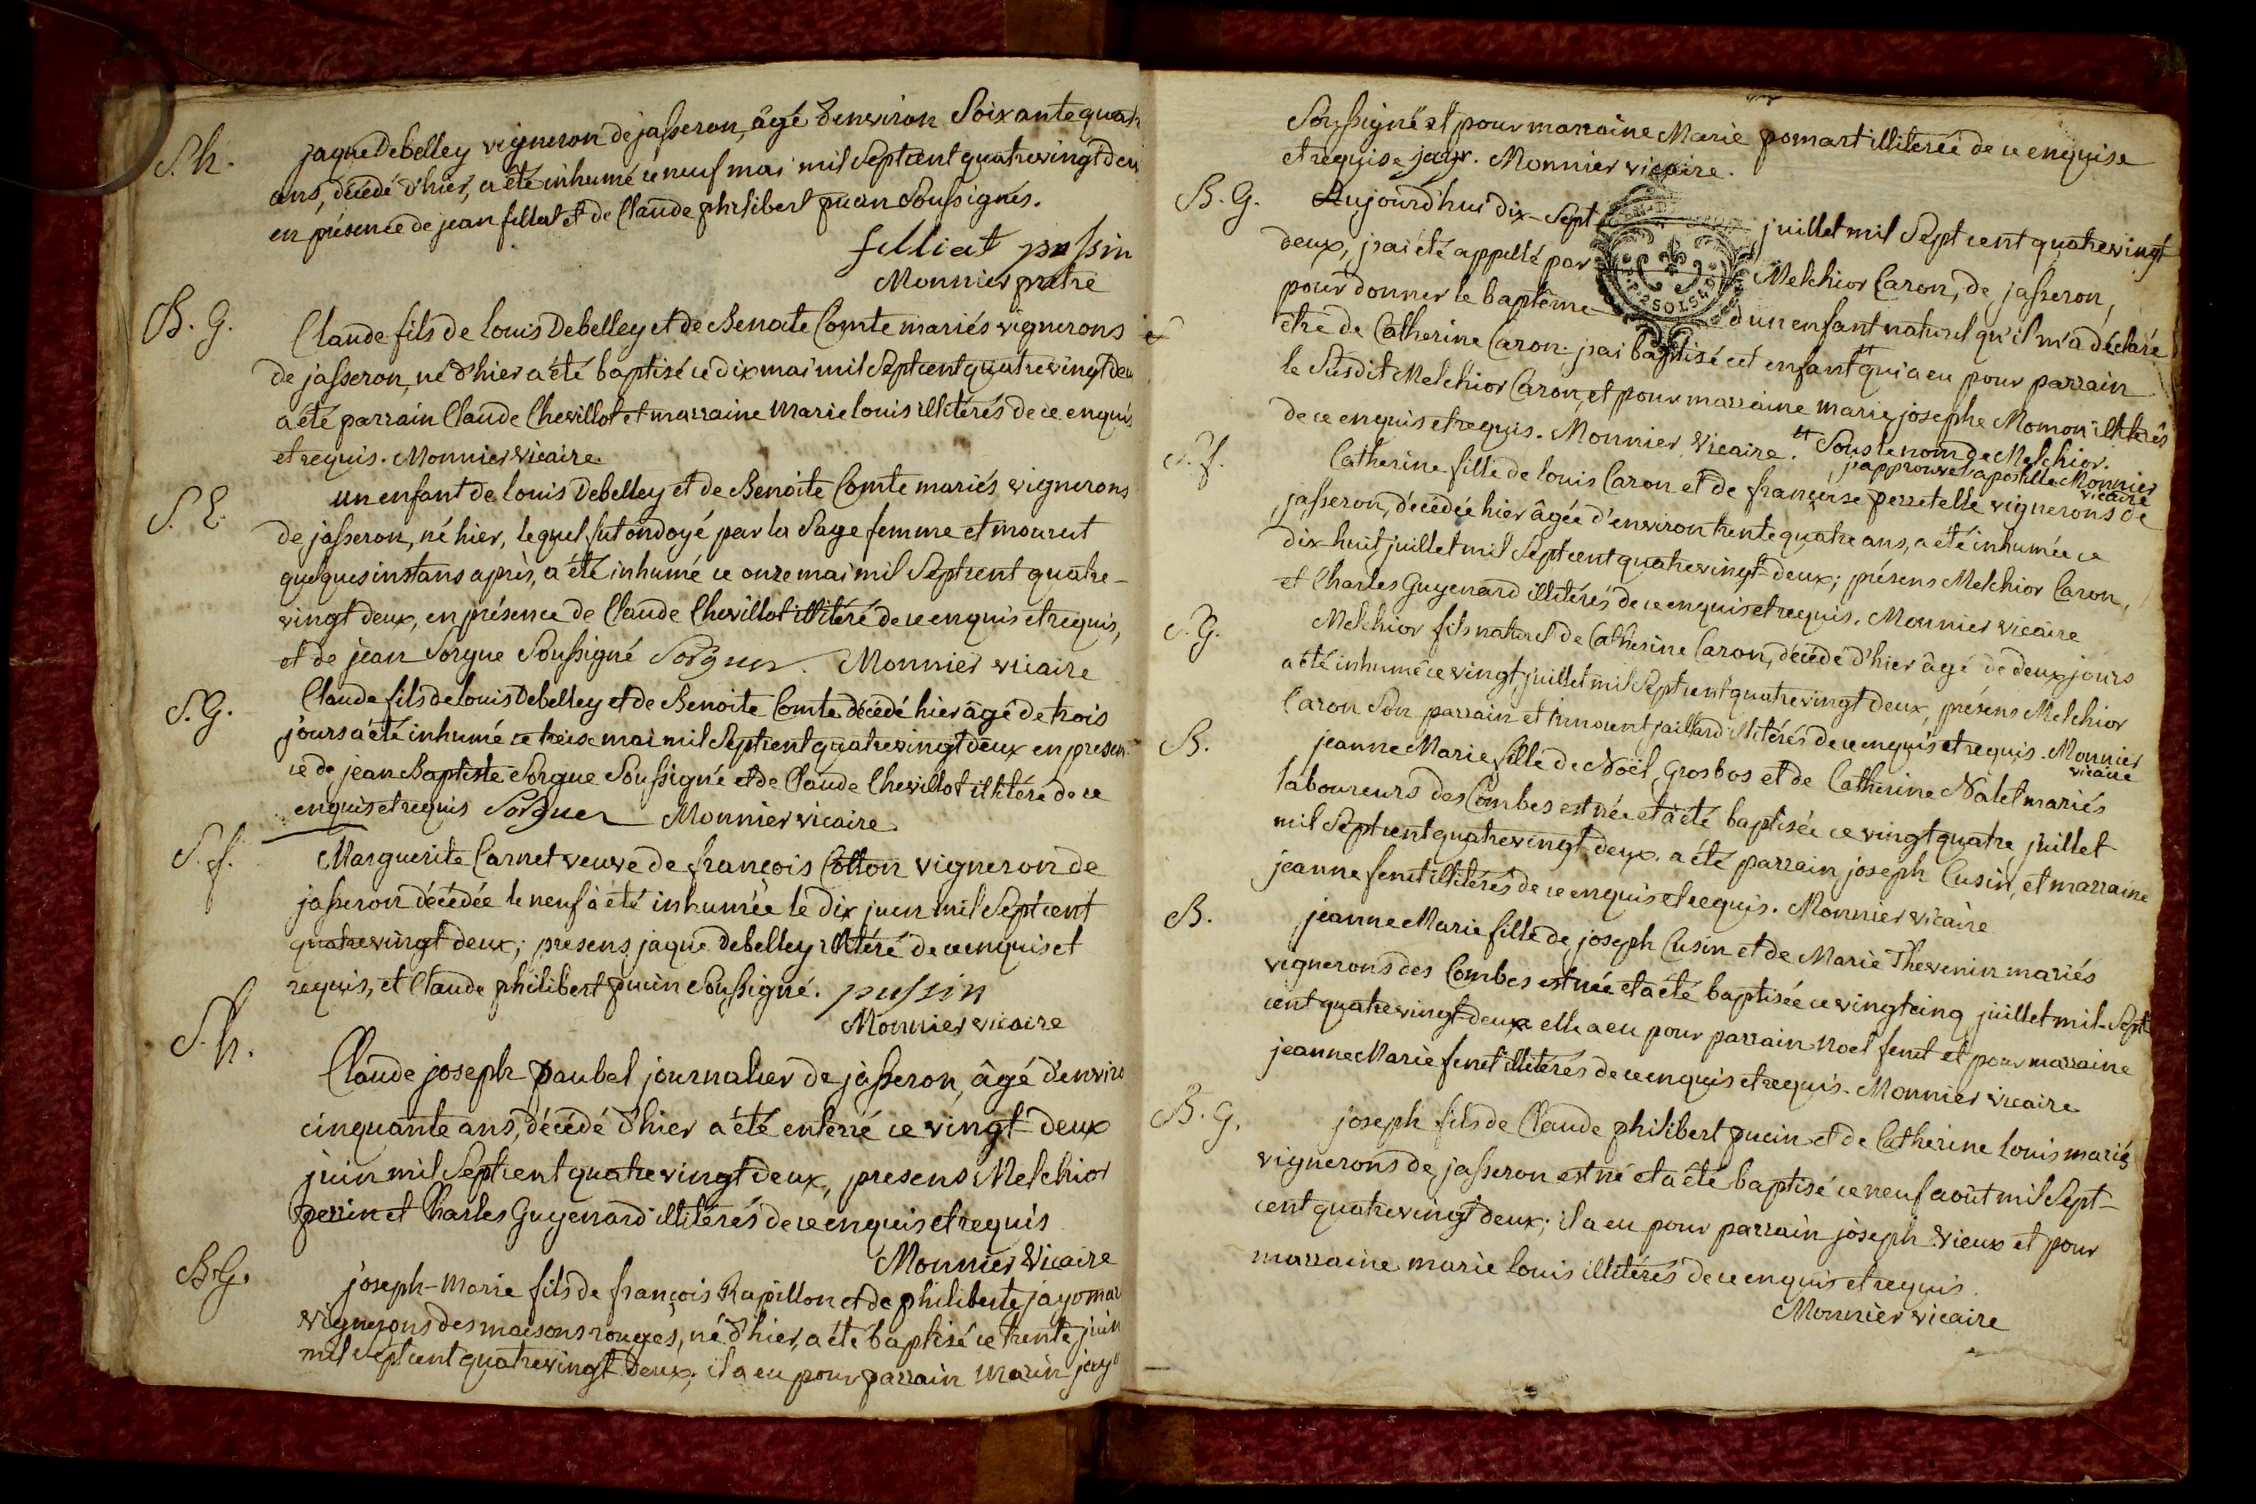 S.h. jaque Debelley vigneron de jasseron, âgé d'environ Soixante quat
ans, décédé d'hier, a été inhumé ce neuf mai mil Sept cent quatre vingt deu
en présence de jean filliat et de Claude philibert pucin Soussignés.
filliat pussin
Monnier pretre
B. G. Claude fils de louis Debelley et de Benoite Comte mariés vignerons
de jasseron, né d'hier a été baptisé ce dix mai mil Sept cent quatre vingt deu
a été parrain Claude Chevillot et marraine marie louis illitérés de ce enquis
et requis. Monnier vicaire
S. E. un enfant de louis Debelley et de Benoite Comte mariés vignerons
de jasseron, né hier, lequel fut ondoyé par la Sage femme et mourut
quelques instans après, a été inhumé ce onze mai mil Sept cent quatre-
vingt deux, en présence de Claude Chevillot illitéré de ce enquis et requis,
et de jean Sorgue Soussigné Sorgues. Monnier vicaire
S. G. Claude fils de louis Debelley et de Benoite Comte décédé hier âgé de trois
jours a été inhumé ce treise mai mil Sept cent quatre vingt deux en presen
ce de jean Baptiste Sorgue Soussigné et de Claude Chevillot illitéré de ce
enquis et requis Sorgues Monnier vicaire
S. f. Marguerite Carnet veuve de françois Cotton vigneron de
jasseron décédée le neuf a été inhumée le dix juin mil Sept cent
quatre vingt deux; presens jaque Debelley illitéré de ce enquis et
requis, et Claude philibert pucin Soussigné. pussin
Monnier vicaire
S. h. Claude joseph paubel journalier de jasseron, âgé d'enviro
cinquante ans, décédé d'hier a été enterré ce vingt deux
juin mil Sept cent quatre vingt deux, presens Melchior
perrin et Charles Guyenard illitérés de ce enquis et requis
Monnier Vicaire
B. G. joseph-Marie fils de françois Rapillon et de philiberte jayr mar
vignerons des maisons rouges, né d'hier, a été baptisé ce trente juin
mil Sept cent quatre vingt deux; il a eu pour parrain Marin jay
Soussigné et pour marraine Marie pomart illiterée de ce enquise
et requise jayr. Monnier vicaire.
B. G. Aujourd'hui dix-Sept juillet mil Sept cent quatre vingt
deux, j'ai été appellé par Melchior Caron, de jasseron,
pour donner le baptême d'un enfant naturel qu'il m'a déclaré
etre de Catherine Caron. j'ai baptisé cet enfant qui a eu pour parrain
le Susdit Melchior Caron, et pour marraine marie josephe Momon illiterés
de ce enquis et requis. Monnier Vicaire. Sous le nom de Melchior.
j'approuve l'apostille Monnier
vicaire
S. f. Catherine fille de louis Caron et de françoise perretelle vignerons de
jasseron, décédée hier âgée d'environ trente quatre ans, a été inhumée ce
dix huit juillet mil Sept cent quatre vingt-deux; présens Melchior Caron,
et Charles Guyenard illitérés de ce enquis et requis. Monnier vicaire
S. G. Melchior fils naturel de Catherine Caron, décédé d'hier âgé de deux jours
a été inhumé ce vingt juillet mil Sept cent quatre vingt deux, présens Melchior
Caron Son parrain et jaillard illitérés de ce enquis et requis. Monnier
vicaire
B. jeanne Marie fille de Noël Grosbos et de Catherine Nalet mariés
laboureurs des Combes est née et a été baptisée ce vingt quatre juillet
mil Sept cent quatre vingt deux. a été parrain joseph Cusin, et marraine
jeanne fenet illitérés de ce enquis et requis. Monnier vicaire
B. jeanne Marie fille de joseph Cusin et de Marie Thevenin mariés
vignerons des Combes est née et a été baptisée ce vingt cinq juillet mil-Sept
cent quatre vingt-deux elle a eu pour parrain noel fenet et pour marraine
jeanne Marie fenet illitérés de ce enquis et requis. Monnier vicaire
B. G. joseph fils de Claude philibert pucin et de Catherine louis mariés
vignerons de jasseron est né et a été baptisé ce neuf août mil Sept-
cent quatre vingt deux; il a eu pour parrain joseph vieux et pour
marraine marie louis illitérés de ce enquis et requis.
Monnier vicaire